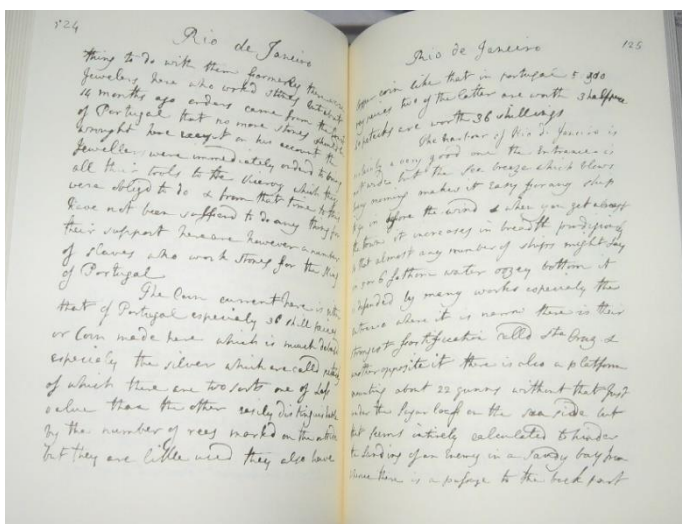 124
Rio de Janeiro
thing to do with them formerly there were
Jewelers here who workd stones but about
14 months ago orders came from the King
of Portugal that no more stones should be
wrought here except on his account the
Jewellers were immediately orderd to bring
all their tools to the Viceroy which they
were obligd to do & from that time to this
have not been sufferd to do any thing for
their support here are however a number
of slaves who work stones for the King
of Portugal
The Coin current here is either
that of Portugal especialy 36 shill pieces
or Coin made here which is much debased
especialy the silver which are called petacks
of which there are two sorts one of less
value than the other easily distinguishable
by the number of rees marked on the outside
but they are little used they also have
Rio de Janeiro
125
copper coin like that in portugal 5 & 10
rey pieces two of the latter are worth 3 halfpence
petacks are worth 36 shillings
The harbour of Rio de Janeiro is
certainly a very good one the Entrance is
not wide but the sea breeze which blows
every morning makes it easy for any ship
to go in before the wind & when you get abreast
the town it increases in breadth prodigiously
so that almost any number of ships might lay
in 5 or 6 fathom water oozey bottom it
is defended by many works especialy the
entrance where it is narrow there is their
strongest fortification calld Sta Cruz &
another opposite it there is also a platform
mounting about 22 gunns without that just
under the Sugar loaf on the sea side but
that seems intirely calculated to hinder
the landing of an Enemy in a sandy bay from
whence there is a passage to the back part